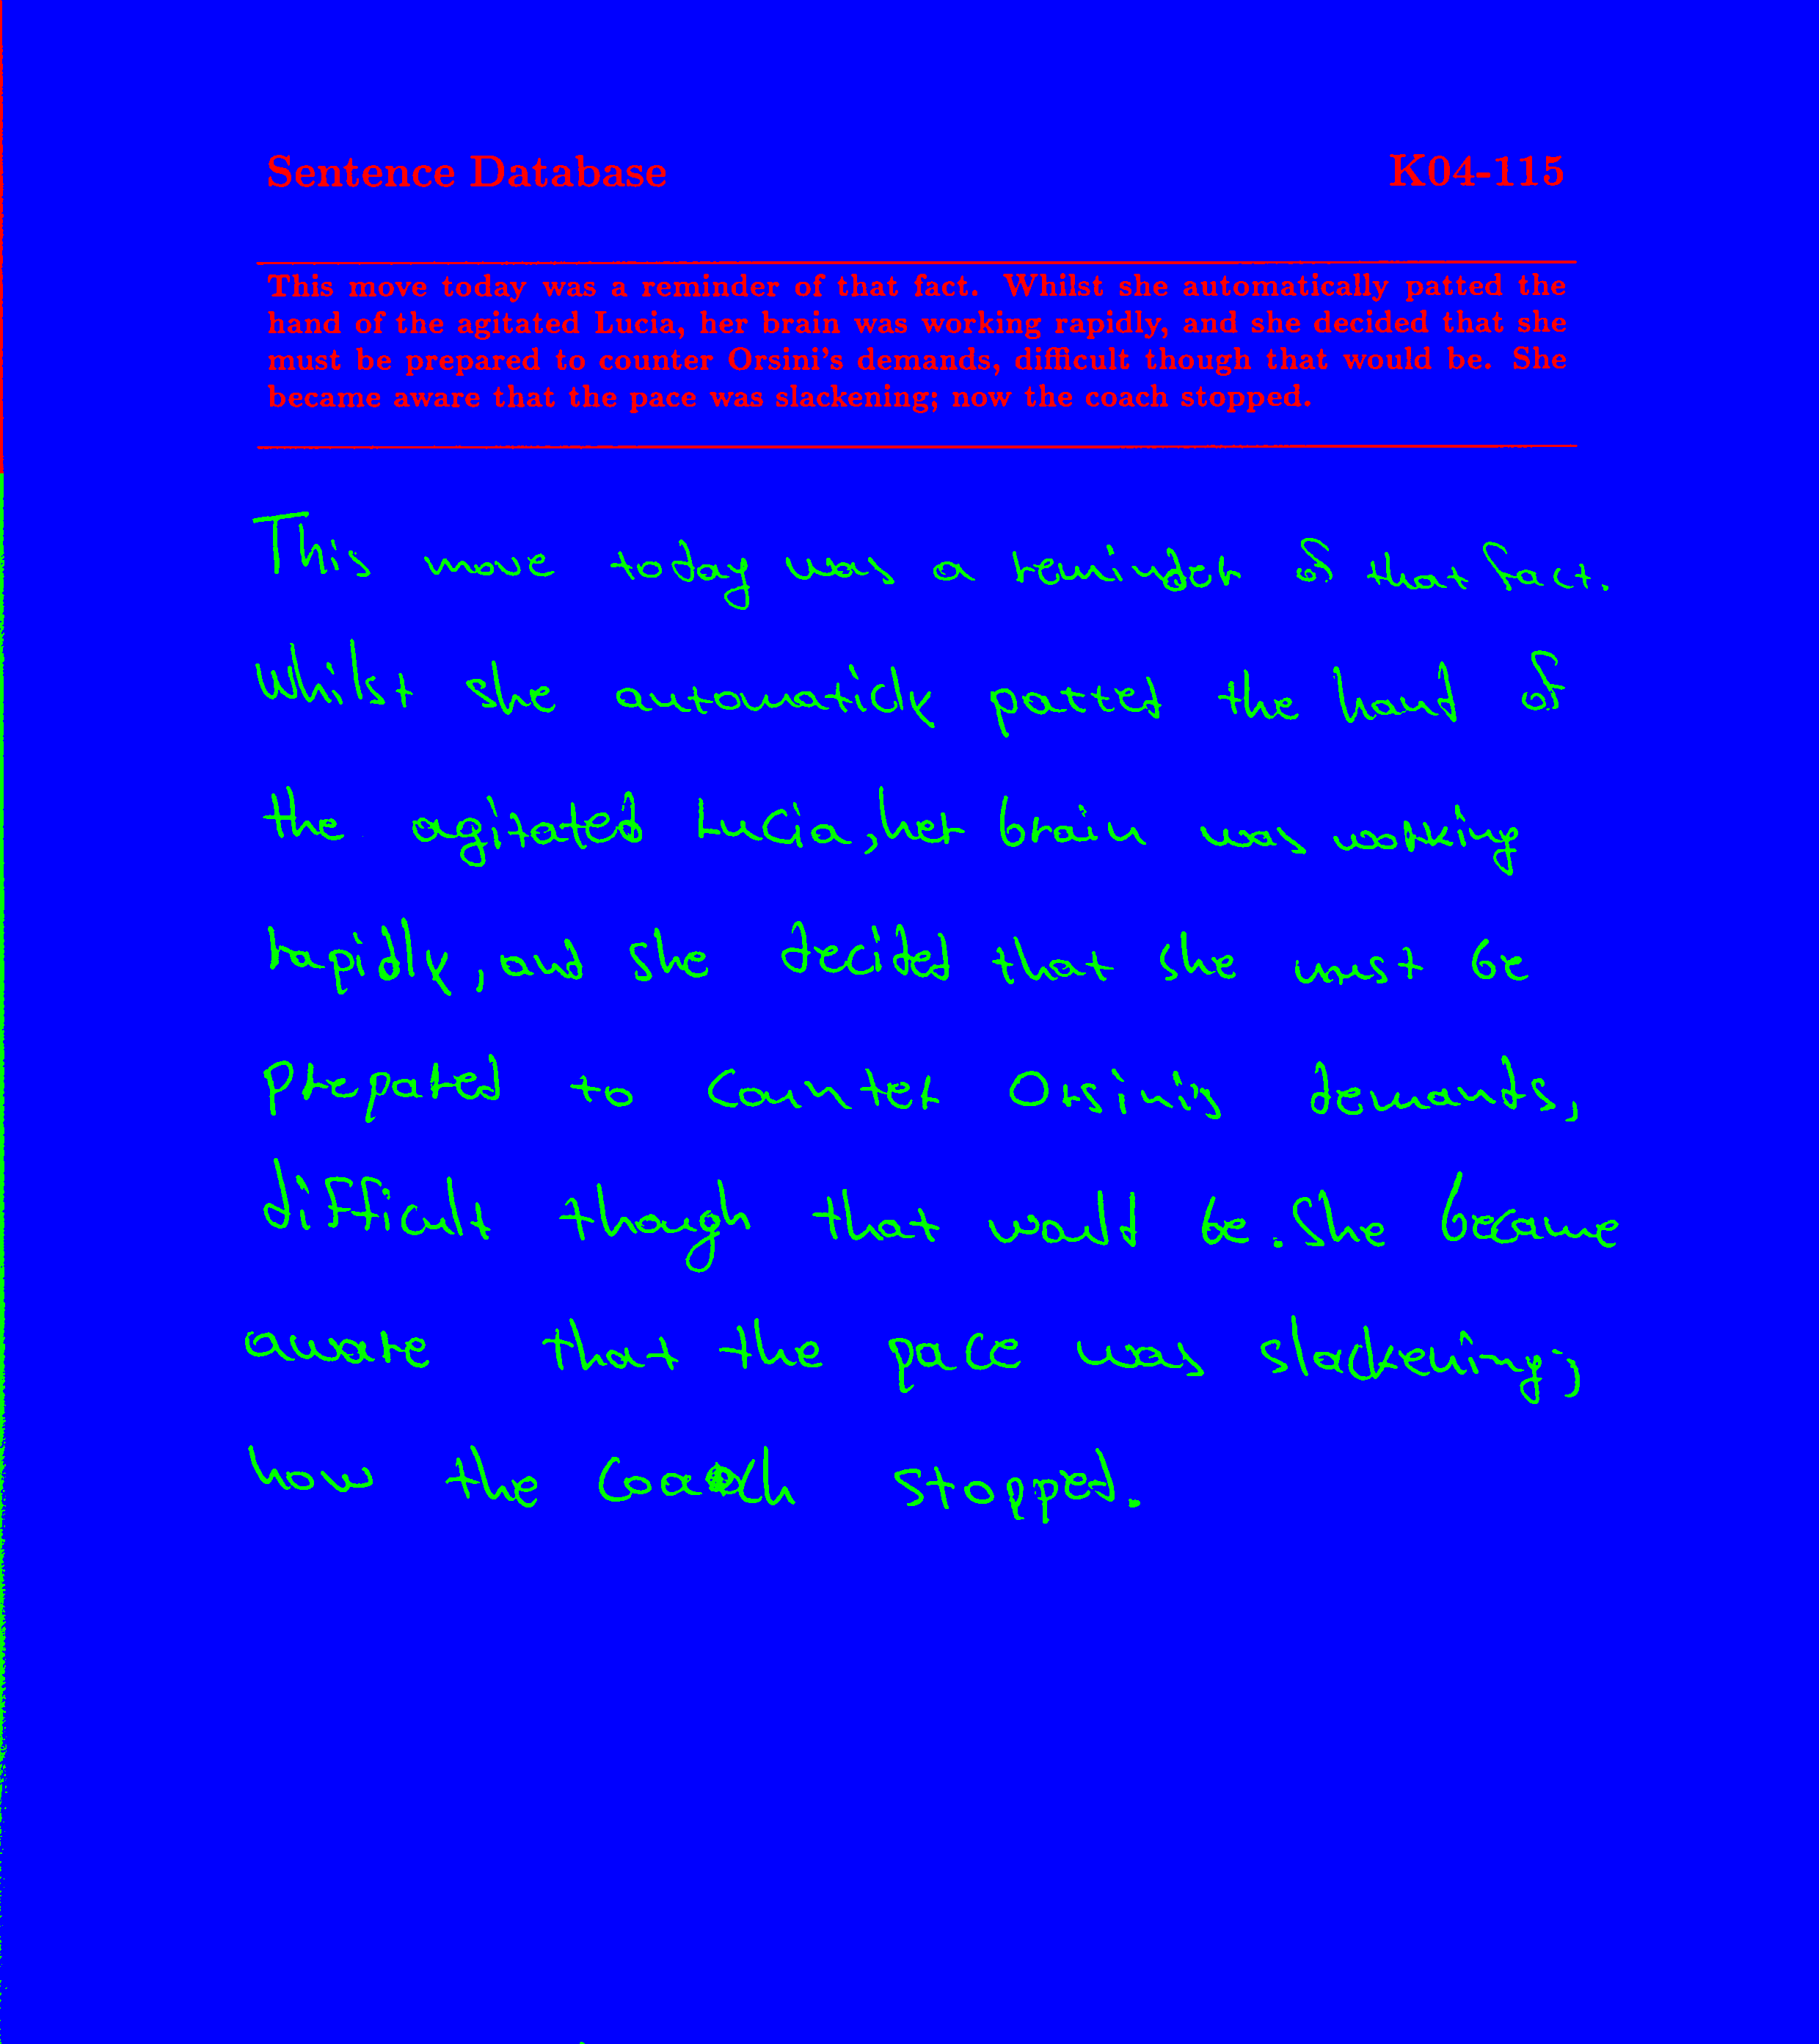 Sentence Database K04-115
This move today was a reminder of that fact. Whilst she automatically patted the
hand of the agitated Lucia, her brain was working rapidly, and she decided that she
must be prepared to counter Orsini's demands, difficult though that would be. She
became aware that the pace was slackening; now the coach stopped.
This move today was a reminder of that fact.
Whilst she automaticly patted the hand of
the agitated Lucia, her brain was working
rapidly, and she decided that she must be
prepared to counter Orsini's demands,
difficult though that would be. She became
aware that the pace was slackening;
now the coach stopped.